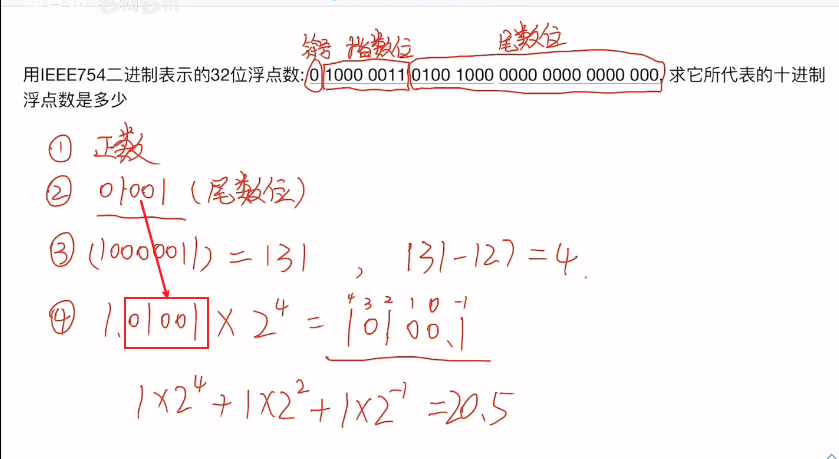 符号 指数位 尾数位
用IEEE754二进制表示的32位浮点数: 0 1000 0011 0100 1000 0000 0000 0000 000, 求它所代表的十进制
浮点数是多少
① 正数
② 01001 (尾数位)
③ (10000011) = 131 , 131-127=4.
4 3 2 1 0 -1
④ 1.01001 × 2⁴ = 10100.1
1×2⁴+1×2²+1×2⁻¹=20.5